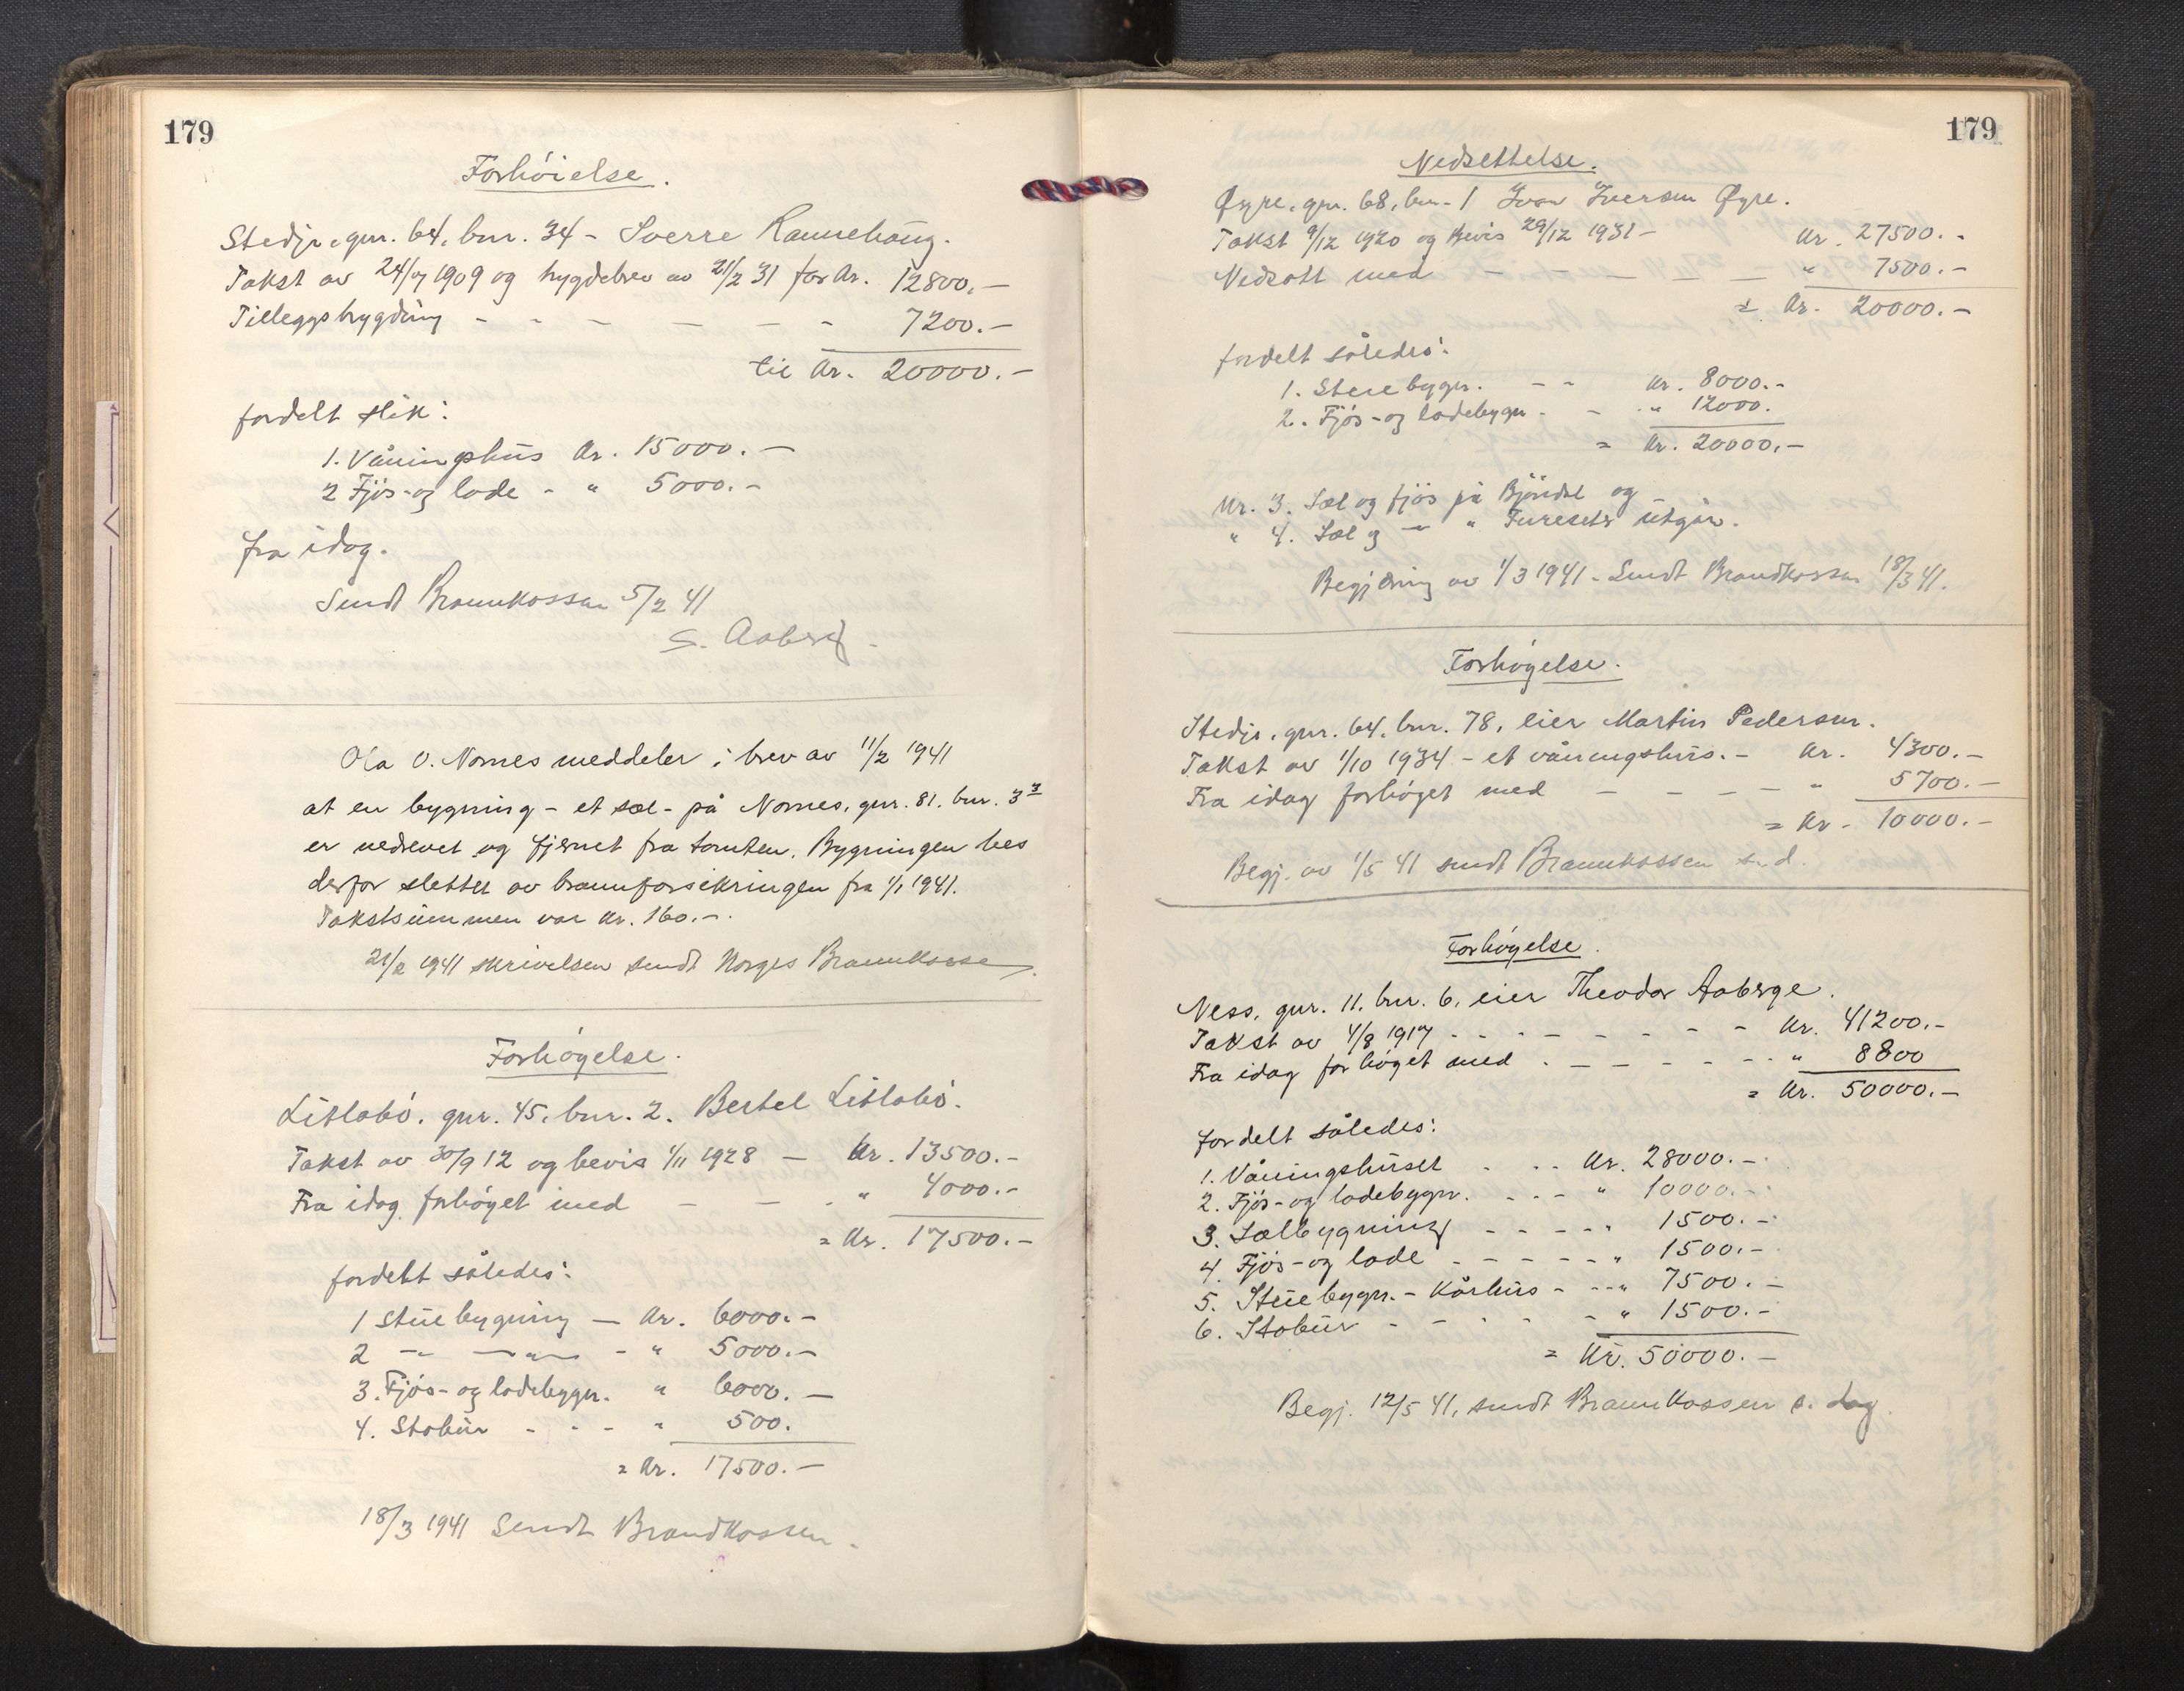 179
Forhöielse.
Stedje, gnr. 64, bnr. 34 - Sverre Rannehaug.
Takst av 24/7 1909 og bygdebrev av 21/2 31 for kr. 12800,-
Tilleggsbygding - - - - - - 7200.-
til kr. 20000.-
fordelt slik:
1. Våningshus kr. 15000.-
2 Fjös- og lade - " 5000.-
fra idag.
Sendt Brannkassen 5/2 41
S. Aaberg.
Ola O. Nornes meddeler i brev av 11/2 1941
at en bygning - et sæl - på Nornes, gnr. 81. bnr. 3
er nedrevet og fjernet fra tomten. Bygningen bes
derfor slettet av brannforsikringen fra 1/1 1941.
Takstsummen var kr. 160.-.
21/2 1941 skrivelsen sendt Norges Brannkasse.
Forhögelse.
Litlabö, gnr. 45, bnr. 2. Bertel Litlabö.
Takst av 30/9 12 og bevis 1/11 1928 - kr. 13500.-
Fra idag forhöget med - - - " 4000.-
= kr. 17500.-
fordelt således:
1 Stuebygning - kr. 6000.-
2 -"- -"- - " 5000.-
3. Fjös- og ladebygn. " 6000.-
4. Stabur - - - " 500.
= kr. 17500.-
18/3 1941 Sendt Brandkassen.
179
Nedsettelse.
Øyre, gnr. 68, bnr. 1 Ivar Iversen Øyre.
Takst 9/12 1920 og Bevis 29/12 1931 - kr. 27500.-
Nedsatt med - - - - - " 7500.-
= kr. 20000.-
fordelt således:
1. Stuebygn. - - kr. 8000.-
2. Fjös- og ladebygn. - " 12000.
= kr. 20000.-
Nr. 3. Sæl og fjös på Bjöndal og
" 4. Sæl og -"- " Furesete utgår.
Begjæring av 1/3 1941 - Sendt Brandkassen 18/3 41.
Forhögelse.
Stedje, gnr. 64, bnr. 78, eier Martin Pedersen.
Takst av 1/10 1934 - et våningshus. - kr. 4300.-
Fra idag forhöget med - - - - " 5700.-
= kr. 10000.-
Begj. av 1/5 41 sendt Brannkassen s.d.
Forhögelse.
Ness, gnr. 11. bnr. 6, eier Theodor Aaberge.
Takst av 4/8 1917 - - - - - - kr. 41200.-
Fra idag forhöget med - - - - - " 8800
= kr. 50000.-
fordelt således:
1. Våningshuset - - - kr. 28000.-
2. Fjös- og ladebygn. - - - " 10000.-
3. Sælbygning - - - - " 1500.-
4. Fjös- og lade - - - - - " 1500.-
5. Stuebygn. - Kårhus - - " 7500.-
6. Stabur - - - - - " 1500.-
= kr. 50000.-
Begj. 12/5 41, sendt Brannkassen s. dag.